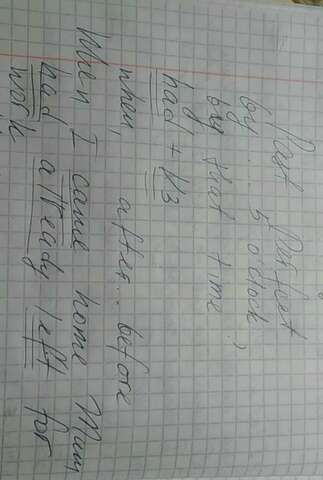 Past Perfect
by ... 5 o'clock
by that time
had + V3
when, after.. before
When I came home Mam
had already left for
work